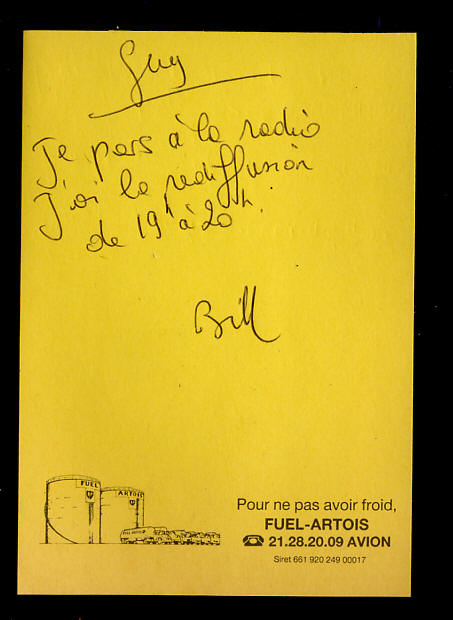 Guy
Je pars à la radio
J'ai la rediffusion
de 19h à 20h.
Bill
FUEL
ARTOIS
Pour ne pas avoir froid,
FUEL-ARTOIS
☎ 21.28.20.09 AVION
Siret 661 920 249 00017